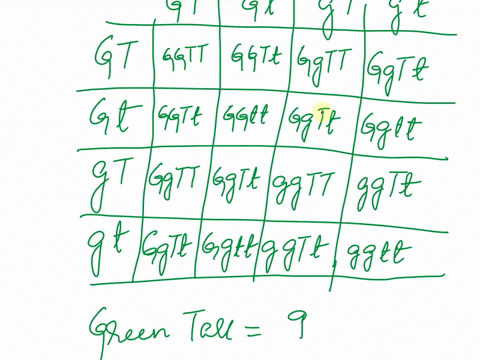 GT Gt gT gt
GT GGTT GGTt GgTT GgTt
Gt GGTt GGtt GgTt Ggtt
gT GgTT GgTt ggTT ggTt
gt GgTt Ggtt ggTt ggtt
Green Tall = 9